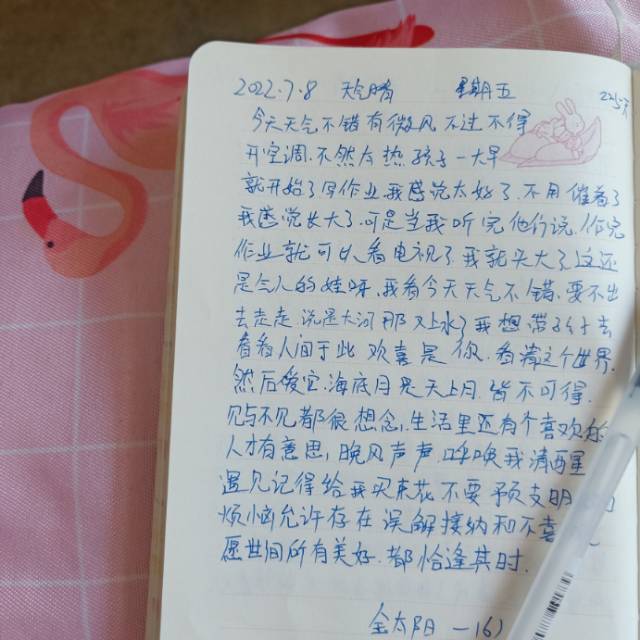 2022.7.8 天气晴 星期五
今天天气不错有微风不过不得
开空调.不然太热孩子一大早
就开始了写作业我感觉太好了.不用催着了
我感觉长大了.可是当我听完他们说.作完
作业就可以看电视了.我就头大了.这还
是气人的娃呀.我看今天天气不错.要不出
去走走.说是大河那又上水了我想带孩子去
看看人间于此欢喜是你.看满这个世界.
然后爱它.海底月是天上月.皆不可得.
见与不见都很想念,生活里还有个喜欢
人才有意思,晚风声声.呼唤我清西星
遇见记得给我买束花不要预支明
烦恼允许存在误解接纳和不
愿世间所有美好.都恰逢其时.
金太阳一16)